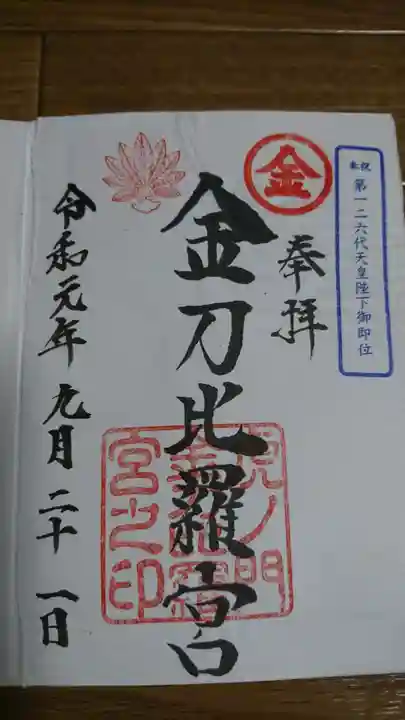 奉祝 第一二六代天皇陛下御即位
金
奉拝
金刀比羅宮
虎ノ門
金刀比羅
宮之印
令和元年九月二十一日